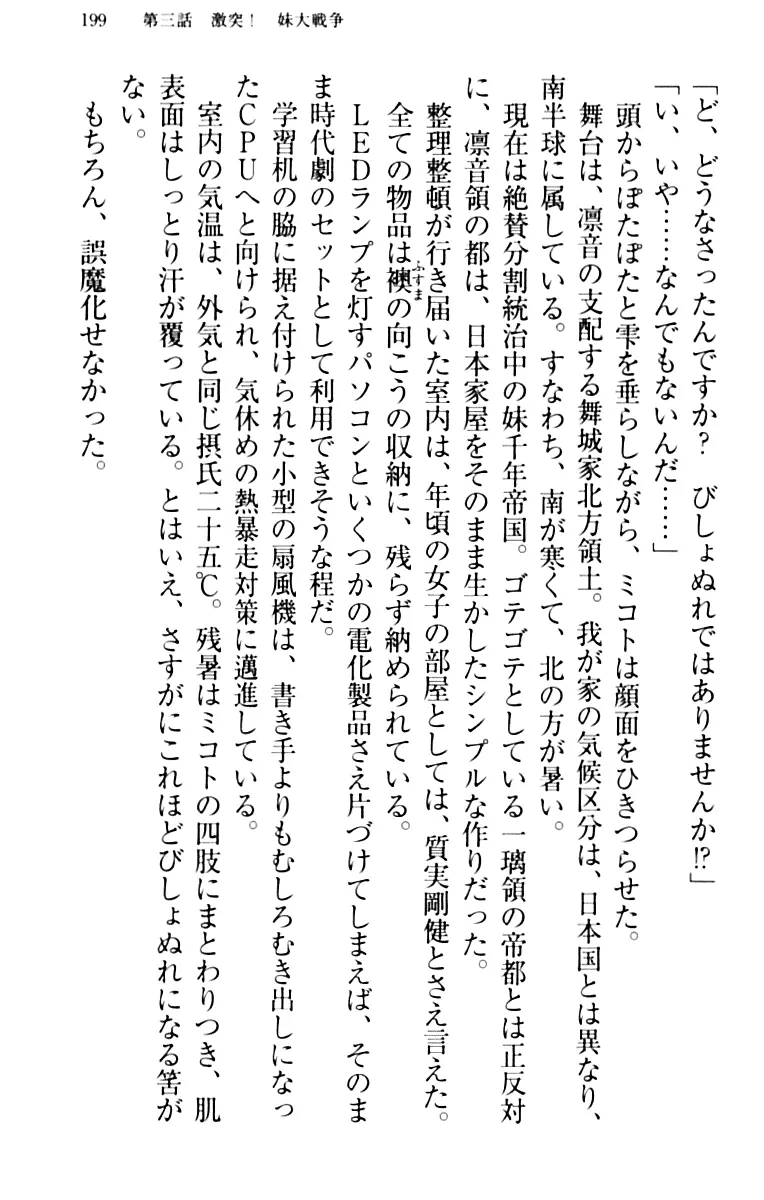 199　第三話　激突！　妹大戦争
「ど、どうなさったんですか？　びしょぬれではありませんか!?」
「い、いや……なんでもないんだ……」
　頭からぽたぽたと雫を垂らしながら、ミコトは顔面をひきつらせた。
　舞台は、凛音の支配する舞城家北方領土。我が家の気候区分は、日本国とは異なり、
南半球に属している。すなわち、南が寒くて、北の方が暑い。
　現在は絶賛分割統治中の妹千年帝国。ゴテゴテとしている一璃領の帝都とは正反対
に、凛音領の都は、日本家屋をそのまま生かしたシンプルな作りだった。
　整理整頓が行き届いた室内は、年頃の女子の部屋としては、質実剛健とさえ言えた。
　全ての物品は襖ふすまの向こうの収納に、残らず納められている。
　ＬＥＤランプを灯すパソコンといくつかの電化製品さえ片づけてしまえば、そのま
ま時代劇のセットとして利用できそうな程だ。
　学習机の脇に据え付けられた小型の扇風機は、書き手よりもむしろむき出しになっ
たＣＰＵへと向けられ、気休めの熱暴走対策に邁進している。
　室内の気温は、外気と同じ摂氏二十五℃。残暑はミコトの四肢にまとわりつき、肌
表面はしっとり汗が覆っている。とはいえ、さすがにこれほどびしょぬれになる筈が
ない。
　もちろん、誤魔化せなかった。